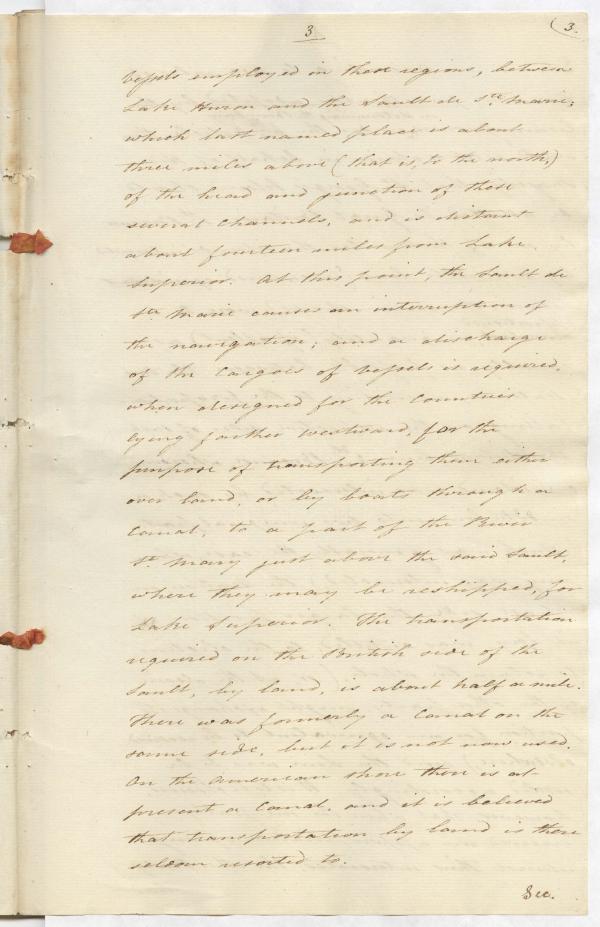 3
(3.
vessels employed in these regions, between
Lake Huron and the Sault de Ste. Marie;
which last named place is about
three miles above (that is, to the north,)
of the head and junction of these
several channels, and is distant
about fourteen miles from Lake
Superior. At this point, the Sault de
Ste Marie causes an interruption of
the navigation; and a discharge
of the Cargoes of vessels is required,
when designed for the countries
lying farther westward, for the
purpose of transporting them either
over land, or by boats through a
Canal, to a part of the River
St. Mary just above the said Sault,
where they may be reshipped, for
Lake Superior. The transportation
required on the British side of the
Sault, by land, is about half a mile.
There was formerly a Canal on the
same side, but it is not now used.
On the American shore there is at
present a Canal, and it is believed
that transportation by land is there
seldom resorted to.
Sec.